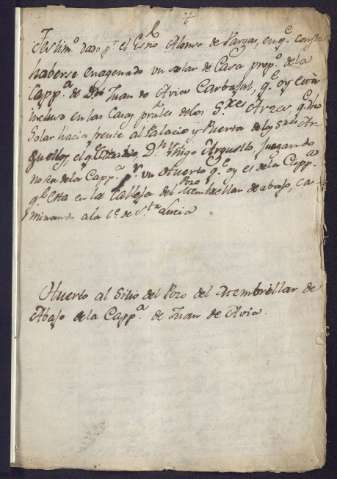 Testim.º dado p.r el Esno Alonso de Vargas, en q.e consta
haberse enagenado un solar de Casa prop.o de la
Capp.a de Juan de Avia Carbajal, q.e oy está
incluso en las Casas prāles de los S.res q.e dho
Solar hacia frente al Palacio y Puerta de los S.res Ar
guello, D.n Iñigo Arguello, 
de la Capp.a un Huerto q.e oy es de la Capp.a
q.e está en la del Pozo Membrillar de abajo, ca
minando a la C.e de S.ta Lucia
Huerto al Sitio del Pozo del Membrillar de
Abajo de la Capp.a de Juan de Avia.